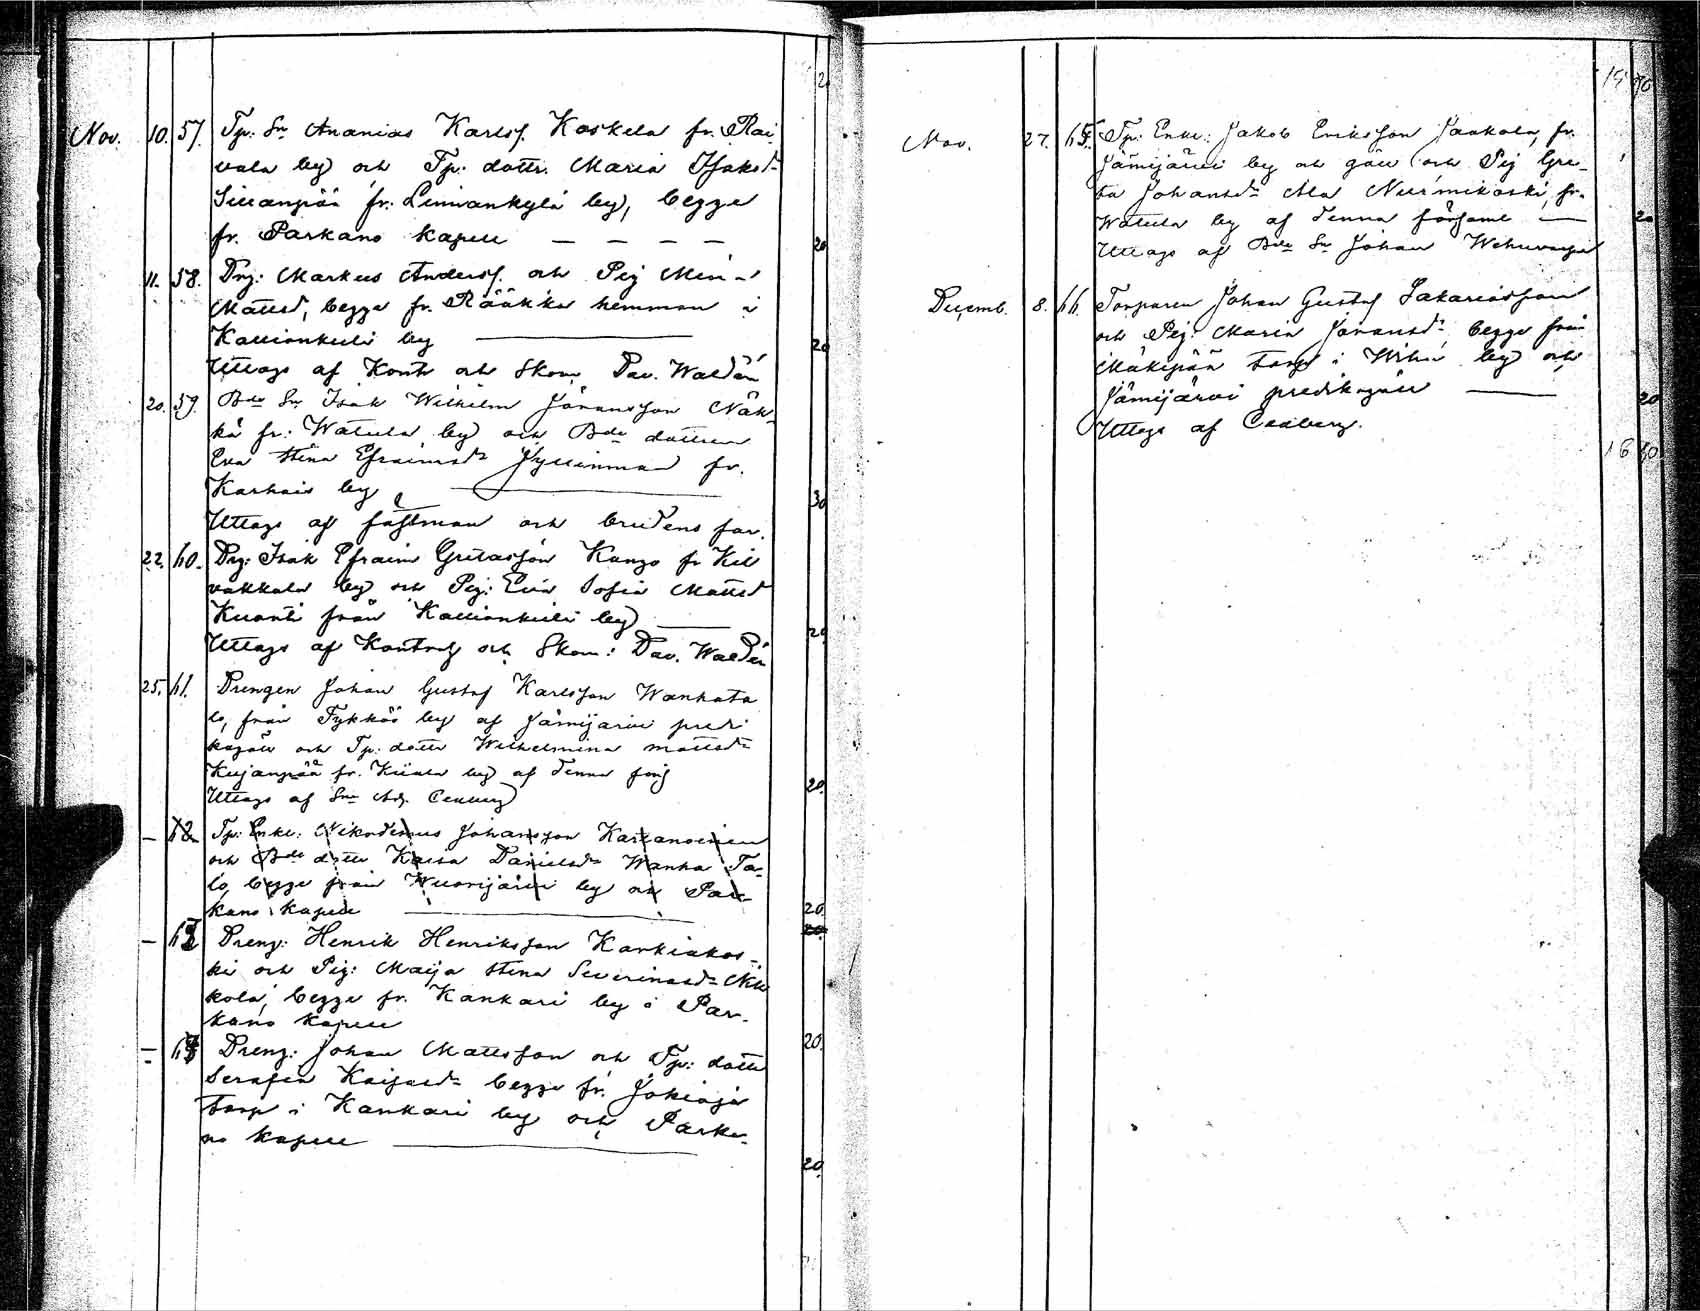 2
Nov. 10. 57. Tp: Sn Ananias Karlsf. Koskela fr. Rai
vala by och Tp: dottr. Maria Isaksd
fr: Linnankylä by, begge
fr. Parkano kapell — — — — 20
11. 58. Drg: Markus Andersf. och Pig Min-
Mattsd, begge fr. Rääkka hemman i
Kallionkieli by 20
Uttogs af Kontr och Skom. Dav. Waldén
20. 59. Bde Sn Isak Wilhelm Jöransson Näk
kä fr: Watula by och Bde dottren
Eva Stina Efraimsd Jyllinmaa fr.
Karhois by 30
Uttogs af fästman och brudens far.
22. 60. Drg: Isak Efraim Gretasson Kango fr Kil
vakkala by och Pig: Eva Sofia Mattsd
Kuonti från Kallionkieli by 20
Uttogs af Kontr och Skom: Dav. Waldén
25. 61. Drengen Johan Gustaf Karlsson Wanhata
lo, från Tykköö by af Jämijärvi predi
kogäll och Tp: dottr Wilhelmina Mattsd
Kujanpää fr. by af denna förs 20.
Uttogs af Sn Adj. Cedberg
— 62 Tp: Enkl: Nikodemus Johansson
och Bde dottr Kaisa Danielsd Wanha Ta-
lo, begge från Wuorijärvi by och Par
kano kapell 20
— 63 Dreng: Henrik Henriksson Karkiakos-
ki och Pig: Maija Stina Severinsd
kola, begge fr. Kankari by i Par-
kano kapell 20.
— 64 Dreng: Johan Mattsson och Tp: dottr
Serafia Kaijasd begge fr. Jokioja
torp i Kankari by och Parka-
no kapell 20
15 90
Nov. 27. 65. Tp: Enkl: Jakob Eriksson Jaakola, fr.
Jämijärvi by och gäll och Pig Gre-
ta Johansd Ala Nurmikoski, fr.
Watula by af denna församl — 20
Uttogs af Bde Sn Johan
Decemb. 8. 66. Torparen Johan Gustaf Sakariasson
och Pig: Maria Joransd begge från
Mäkipää torp i Wihu by och
Jämijärvi predikogäll 20
Uttogs af Cedberg.
16 30